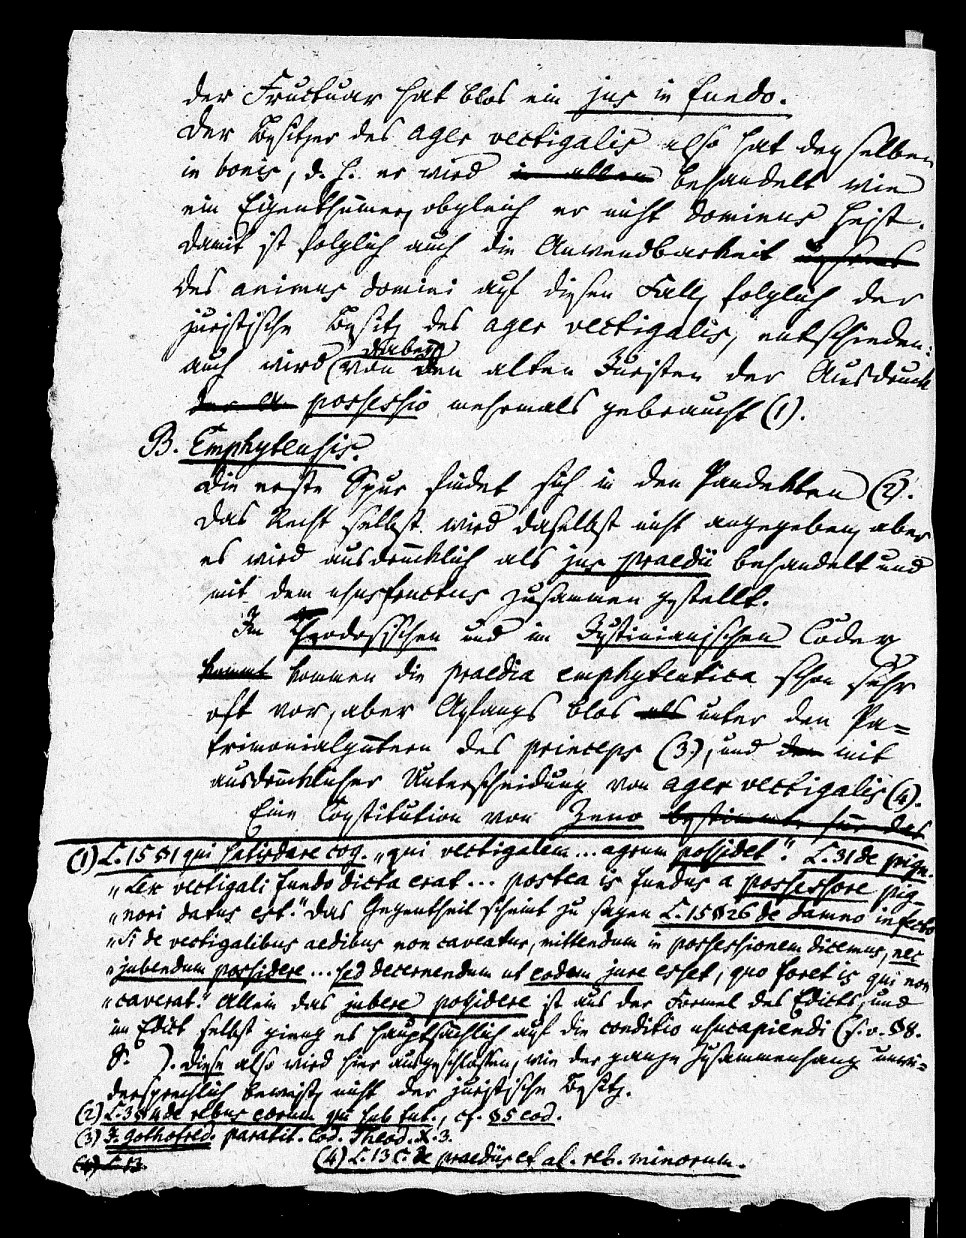 der Fructuar hat blos ein jus in fundo.
Der Besitzer des ager vectigalis also hat denselben
in bonis, d. h. er wird in allem behandelt wie
ein Eigenthümer, obgleich er nicht dominus heist.
Damit ist folglich auch die Anwendbarkeit unsres
des animus domini auf diesen Fall, folglich der
juristische Besitz des ager vectigalis, entschieden:
auch wird (von den alten Juristen der Ausdruck
daher
der a possessio mehrmals gebraucht (1).
B. Emphyteusis.
Die erste Spur findet sich in den Pandekten (2).
Das Recht selbst wird daselbst nicht angegeben, aber
es wird ausdrücklich als jus praedii behandelt und
mit dem ususfructus zusammen gestellt.
Im Theodosischen und im Justinianischen Codex
kommt kommen die praedia emphyteutica schon sehr
oft vor, aber Anfangs blos als unter den Pa=
trimonialgütern des princeps (3), und den mit
ausdrücklicher Unterscheidung von ager vectigalis (4).
Eine Constitution von Zeno bestimmte für das
(1) L. 15 §1 qui satisdare cog. „qui vectigalem ... agrum possidet“. L. 31 de pign.
„Lex vectigali fundo dicta erat ... postea is fundus a possessore pig-
„nori datus est.“ Das Gegentheil scheint zu sagen L. 15 §26 de damno infecto
„Si de vectigalibus aedibus non caveatur, mittendum in possessionem dicemus, nec
„jubendum possidere ... sed decernendum ut eodem jure esset, quo foret is qui non
„caverat.“ Allein das jubere possidere ist aus der Formel des Edicts, und
im Edict selbst gieng es hauptsächlich auf die conditio usucapiendi (s. o. §8.
S. ). Diese also wird hier ausgeschlossen, wie der ganze Zusammenhang unwi=
dersprechlich beweist, nicht der juristische Besitz.
(2) L. 3 §4 de rebus eorum qui sub tut., cf. §5 eod.
(3) J. Gothofred. paratit. Cod. Theod. X. 3.
(4) L. 13. (4) L. 13 C. de praediis et al. reb. minorum.